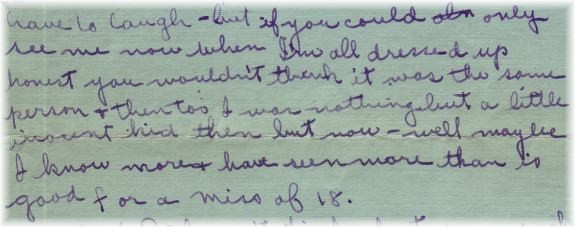 have to laugh - but if you could only
see me now when I'm all dressed up
honest you wouldn't think it was the same
person + then too I was nothing but a little
inocent kid then but now - well maybe
I know more + have seen more than is
good for a miss of 18.